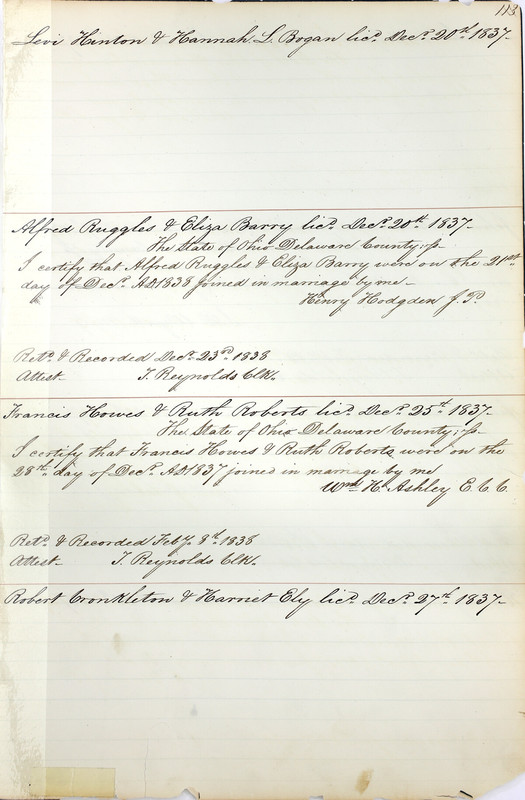 113
Levi Hinton & Hannah L. Bogan licd. Decr. 20th. 1837-
Alfred Ruggles & Eliza Barry licd. Decr. 20th. 1837-
The State of Ohio Delaware County, ss-
I certify that Alfred Ruggles & Eliza Barry were on the 21st
day of Decr. AD 1838 joined in marriage by me-
Henry Hodgden J. P.
Retd. & Recorded Decr. 23rd. 1838
Attest- T. Reynolds Clk.
Francis Howes & Ruth Roberts licd. Decr. 25th. 1837-
The State of Ohio Delaware County, ss-
I certify that Francis Howes & Ruth Roberts were on the
28th. day of Decr. AD 1837 joined in marriage by me
Wm. H. Ashley E. C. C.
Retd. & Recorded Feby. 8th. 1838
Attest- T. Reynolds Clk.
Robert Cronkleton & Harriet Ely licd. Decr. 27th. 1837-